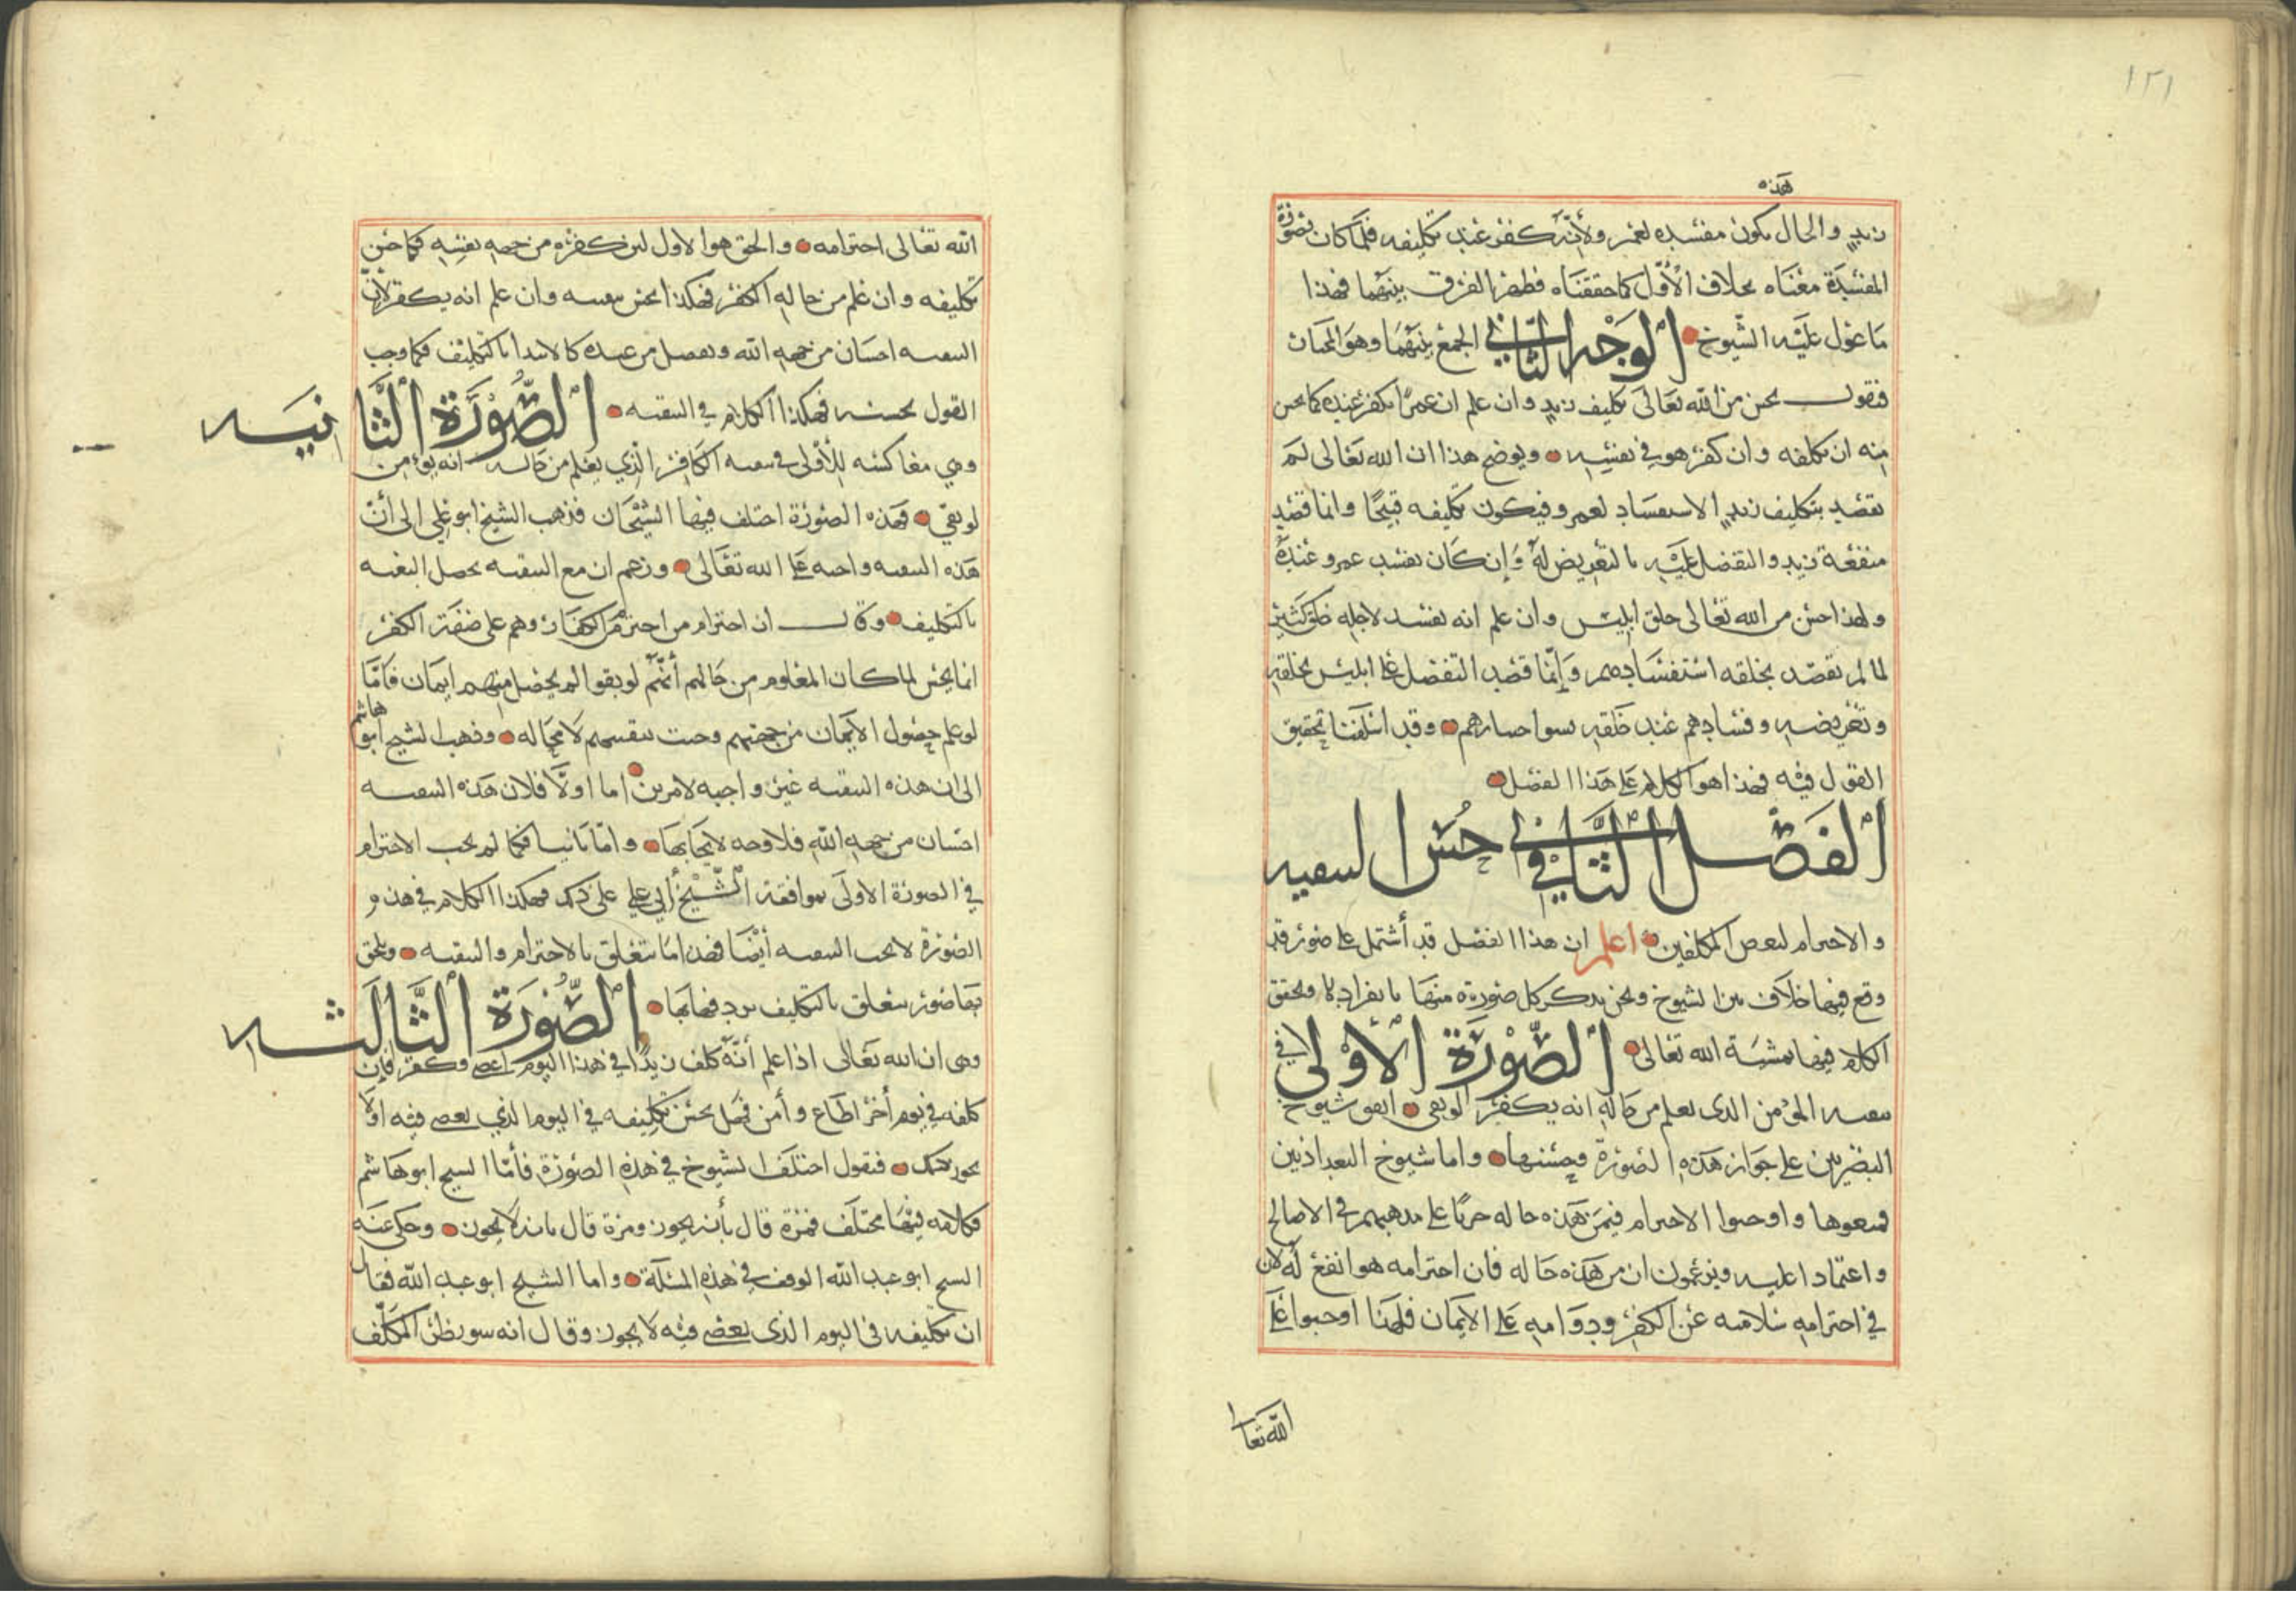 ١٢١
هذه
زيد والحال يكون مفسده لعمر ولأنه كفر عند تكليفه فلما كان بصورة
المفسدة معناه بخلاف الأول كما حققناه فظهر الفرق بينهما فهذا
ما عول عليه الشيوخ الوجه الثاني في الجمع بينهما وهو المختار
فنقول يحسن من الله تعالى تكليف زيد وان علم ان عمرًا يكفر عنده كما يحسن
منه ان يكلفه وان كفر هو في نفسه ويوضح هذا ان الله تعالى لم
يقصد بتكليف زيد الاستفساد لعمرو فيكون تكليفه قبيحًا وانما قصد
منفعة زيد والتفضل عليه بالتعريض له وإن كان يفسد عمرو عنده
ولهذا حسن من الله تعالى خلق ابليس وان علم انه يفسد لاجله خلق كثير
لما لم يقصد بخلقه استفسادهم وإنما قصد التفضل على ابليس بخلقه
وتعريضه وفسادهم عند خلقه بسوا اختيارهم وقد اسلفنا تحقيق
القول فيه فهذا هو الكلام على هذا الفصل
الفصل الثاني في حسن التبقيه
والاخترام لبعض المكلفين اعلم ان هذا الفصل قد أشتمل على صور قد
وقع فيها خلاف بين الشيوخ ونحن نذكر كل صورة منها بانفرادها ونحقق
الكلام فيها بمشية الله تعالى الصورة الأولى في
تبقيه المؤمن الذى يعلم من حاله انه يكفر لو بقى اتفق شيوخ
البصريين على جواز هذه الصورة وحسنها واما شيوخ البغداذيين
فمنعوها واوجبوا الاخترام فيمن هذه حاله جريًا على مذهبهم في الاصالح
واعتمادا عليه ويزعمون ان من هذه حاله فان اخترامه هو انفع له لان
في اخترامه سلامته عن الكفر ودوامه على الايمان فلهذا اوجبوا على
الله تعا
الله تعالى اخترامه والحق هو الاول لان كفره من جهه نفسه فكما حسن
تكليفه وان علم من حاله الكفر فهكذا يحسن تبقيته وان علم انه يكفر لأن
التبقيه احسان من جهه الله وتفضل من عنده كالابتدا بالتكليف فكما وجب
القول بحسنه فهكذا الكلام في التبقيه الصورة الثانيه
وهي معاكسه للأولى في تبقيه الكافر الذي يعلم من حاله انه يؤمن
لو بقي فهذه الصورة اختلف فيها الشيخان فذهب الشيخ ابو علي الى أن
هذه التبقيه واجبه على الله تعالى وزعم ان مع التبقيه يحصل البغيه
بالتكليف وقال ان اخترام من اخترم من الكفار وهم على صفة الكفر
انما يحسن لما كان المعلوم من حالهم أنهم لو بقوا لم يحصل منهم ايمان فأما
لو علم حصول الايمان من جهتهم وجبت تبقيتهم لا محاله وذهب الشيخ أبو هاشم
الى ان هذه التبقيه غير واجبه لامرين اما اولًا فلان هذه التبقيه
احسان من جهه الله فلا وجه لايجابها واما ثانيا فكما لم يجب الاخترام
في الصورة الاولى بموافقة الشيخ أبي علي على ذلك فهكذا الكلام في هذه
الصورة لا تجب التبقيه أيضا فهذا ما يتعلق بالاخترام والتبقيه ويلحق
بها صور تتعلق بالتكليف نردفها بها الصورة الثالثه
وهى ان الله تعالى اذا علم أنه كلف زيدًا في هذا اليوم عصى وكفر فإن
كلفه في يوم أخر اطاع وأمن فهل يحسن تكليفه في اليوم الذي يعصى فيه اولا
يجوز ذلك فنقول اختلف الشيوخ في هذه الصورة فأما الشيخ ابو هاشم
فكلامه فيها مختلف فمرة قال بأنه يجوز ومرة قال بانه لا يجوز وحكى عنه
الشيخ ابو عبد الله الوقف في هذه المسئلة واما الشيخ ابو عبد الله فقال
ان تكليفه فى اليوم الذى يعصى فيه لا يجوز وقال انه سو نظر المكلف